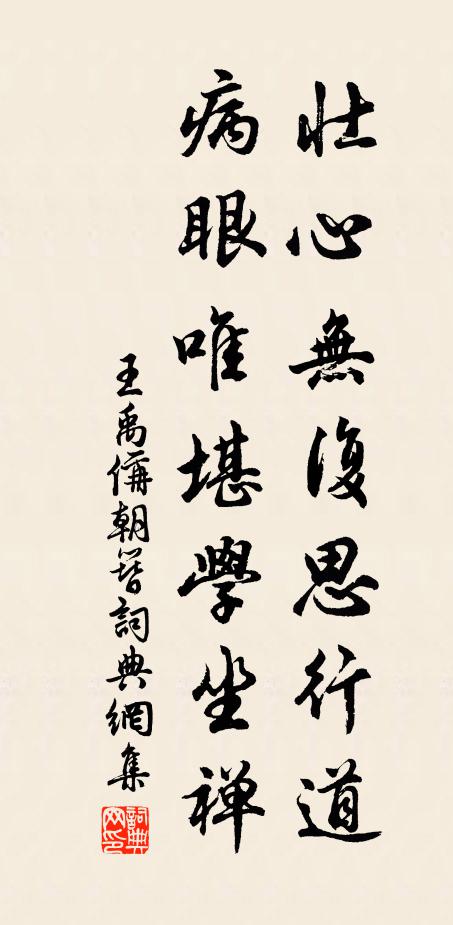 壮心無復思行道
病眼唯堪學坐禅
王禹偁《朝簪》詞典網集
詞典網印